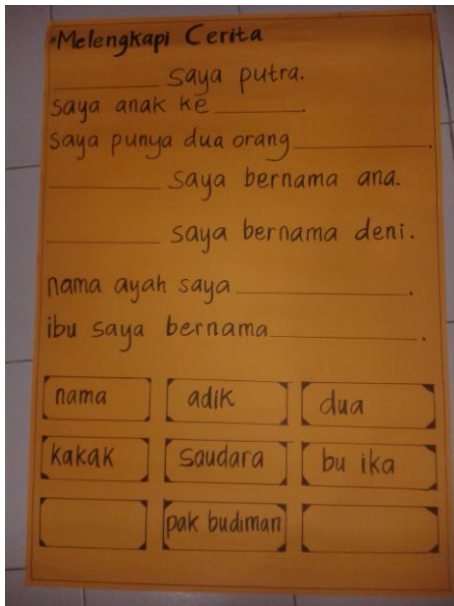 Melengkapi Cerita
_______ saya putra.
saya anak ke _______.
saya punya dua orang _______.
_______ saya bernama ana.
_______ saya bernama deni.
nama ayah saya _______.
ibu saya bernama _______.
nama adik dua
kakak saudara bu ika
pak budiman